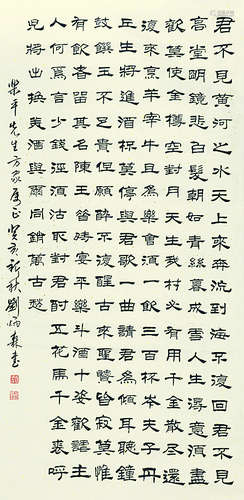 君不見黃河之水天上來奔流到海不復回君不見
高堂明鏡悲白髮朝如青絲暮成雪人生得意須盡
歡莫使金樽空對月天生我材必有用千金散盡還
復來烹羊宰牛且為樂會須一飲三百杯岑夫子丹
丘生將進酒杯莫停與君歌一曲請君為傾耳聽鐘
鼓饌玉不足貴但願長醉不醒古來聖賢皆寂寞惟
有飲者留其名陳王昔時宴平樂斗酒十千恣歡謔主
人何為言少錢徑須沽取對君酌五花馬千金裘呼
兒將出換美酒與爾同銷萬古愁
樂平先生方家屬正癸亥新秋劉炳森書